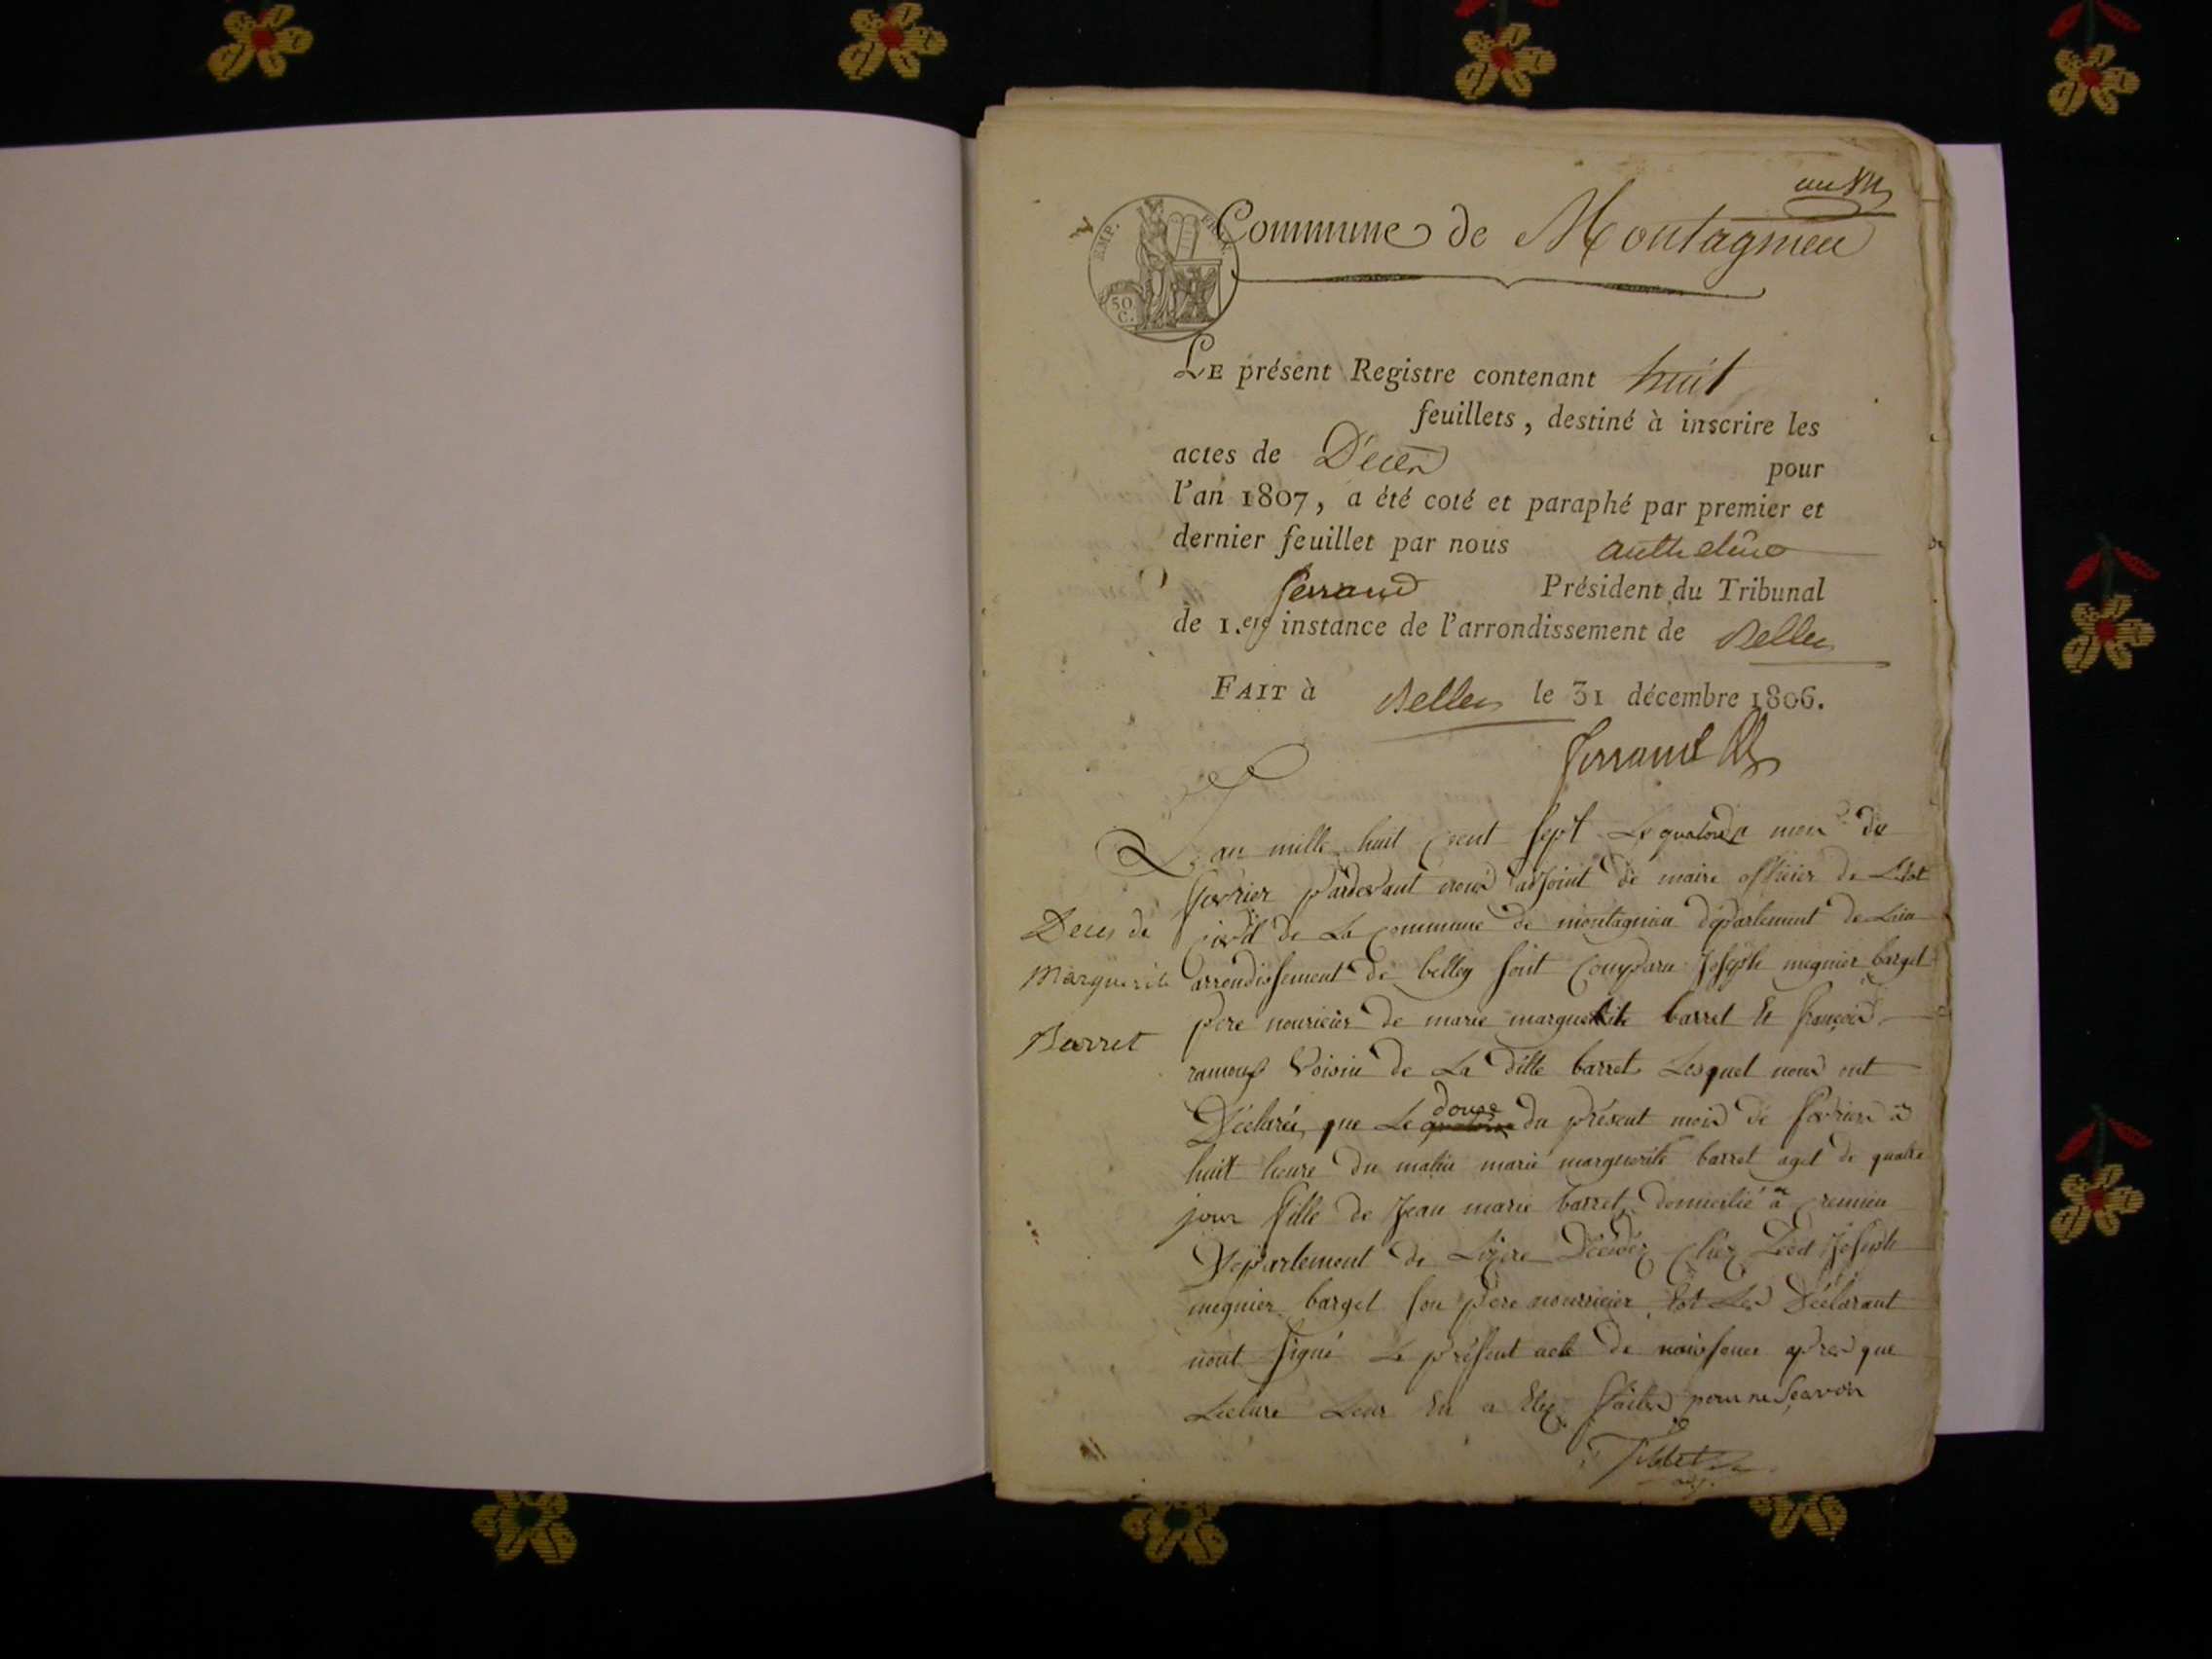 Commune de Montagnieu
EMP. FRANC.
50
C.
LE présent Registre contenant huit
feuillets, destiné à inscrire les
actes de Décès pour
l'an 1807, a été coté et paraphé par premier et
dernier feuillet par nous anthelme
ferrand Président du Tribunal
de 1.ere instance de l'arrondissement de Belley
FAIT à Belley le 31 décembre 1806.
ferrand
L'an mille huit cent sept Le quatorze mois de
fevrier pardevant nous adjoint de maire officier de L'etat
Deces de
civil de La commune de montagnieu département de Lain
Marguerite
arrondissement de belley sont comparu Joseph megnier barget
Barret
pere nouricier de marie marguerite barret et françois
ramous Voisin de La ditte barret Lesquel nous ont
Déclarée que Le douze du présent mois de fevrier à
huit heure du matin marie marguerite barret aget de quatre
jour fille de Jean marie barret domicilié à cremieu
Département de Lizere Décédéz chez Ledt Joseph
megnier barget son pere nourricier Et Les Déclarant
nont signé Le présent acte de naissance apres que
Lecture Leur En a Etez faites pour ne scavoir